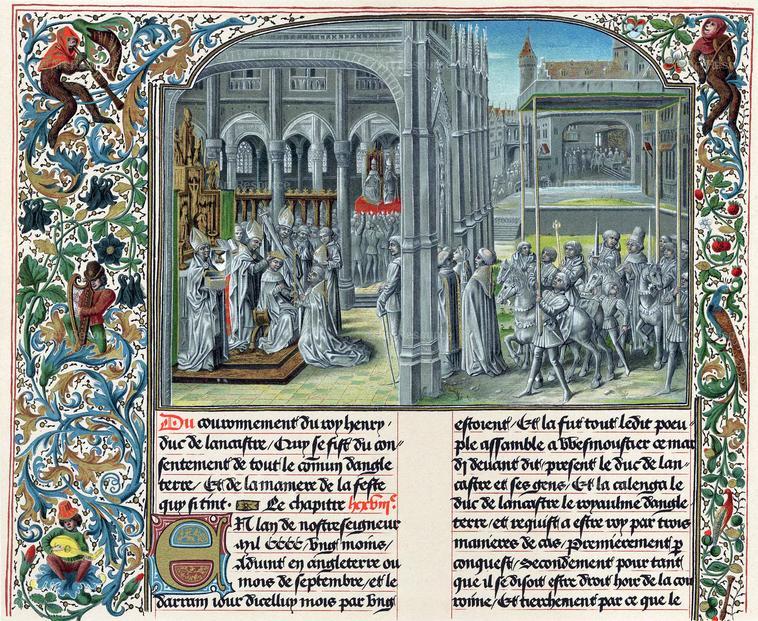 Du couronnement du roy henry /
duc de lancastre / Quy se fist du con=
sentement de tout le comun dangle
terre / Et de la maniere de la feste
quy si tint. Le chapitre lxxviii.
En lan de nostre seigneur
mil cccc / vng moins /
Aduint en angleterre ou
mois de septembre / et le
darrain iour dicelluy mois par vng
estoient / Et la fut tout ledit poeu=
ple assamble a wesmoustier ce mar
di deuant dit / present le duc de lan=
castre et ses gens / Et la calenga le
duc de lancastre le royaulme dangle=
terre / et requist a estre roy par trois
manieres de cas / Premierement p
conquest / Secondement pour tant
que il se disoit estre droit hoir de la cou
ronne / Et tierchement par ce que le